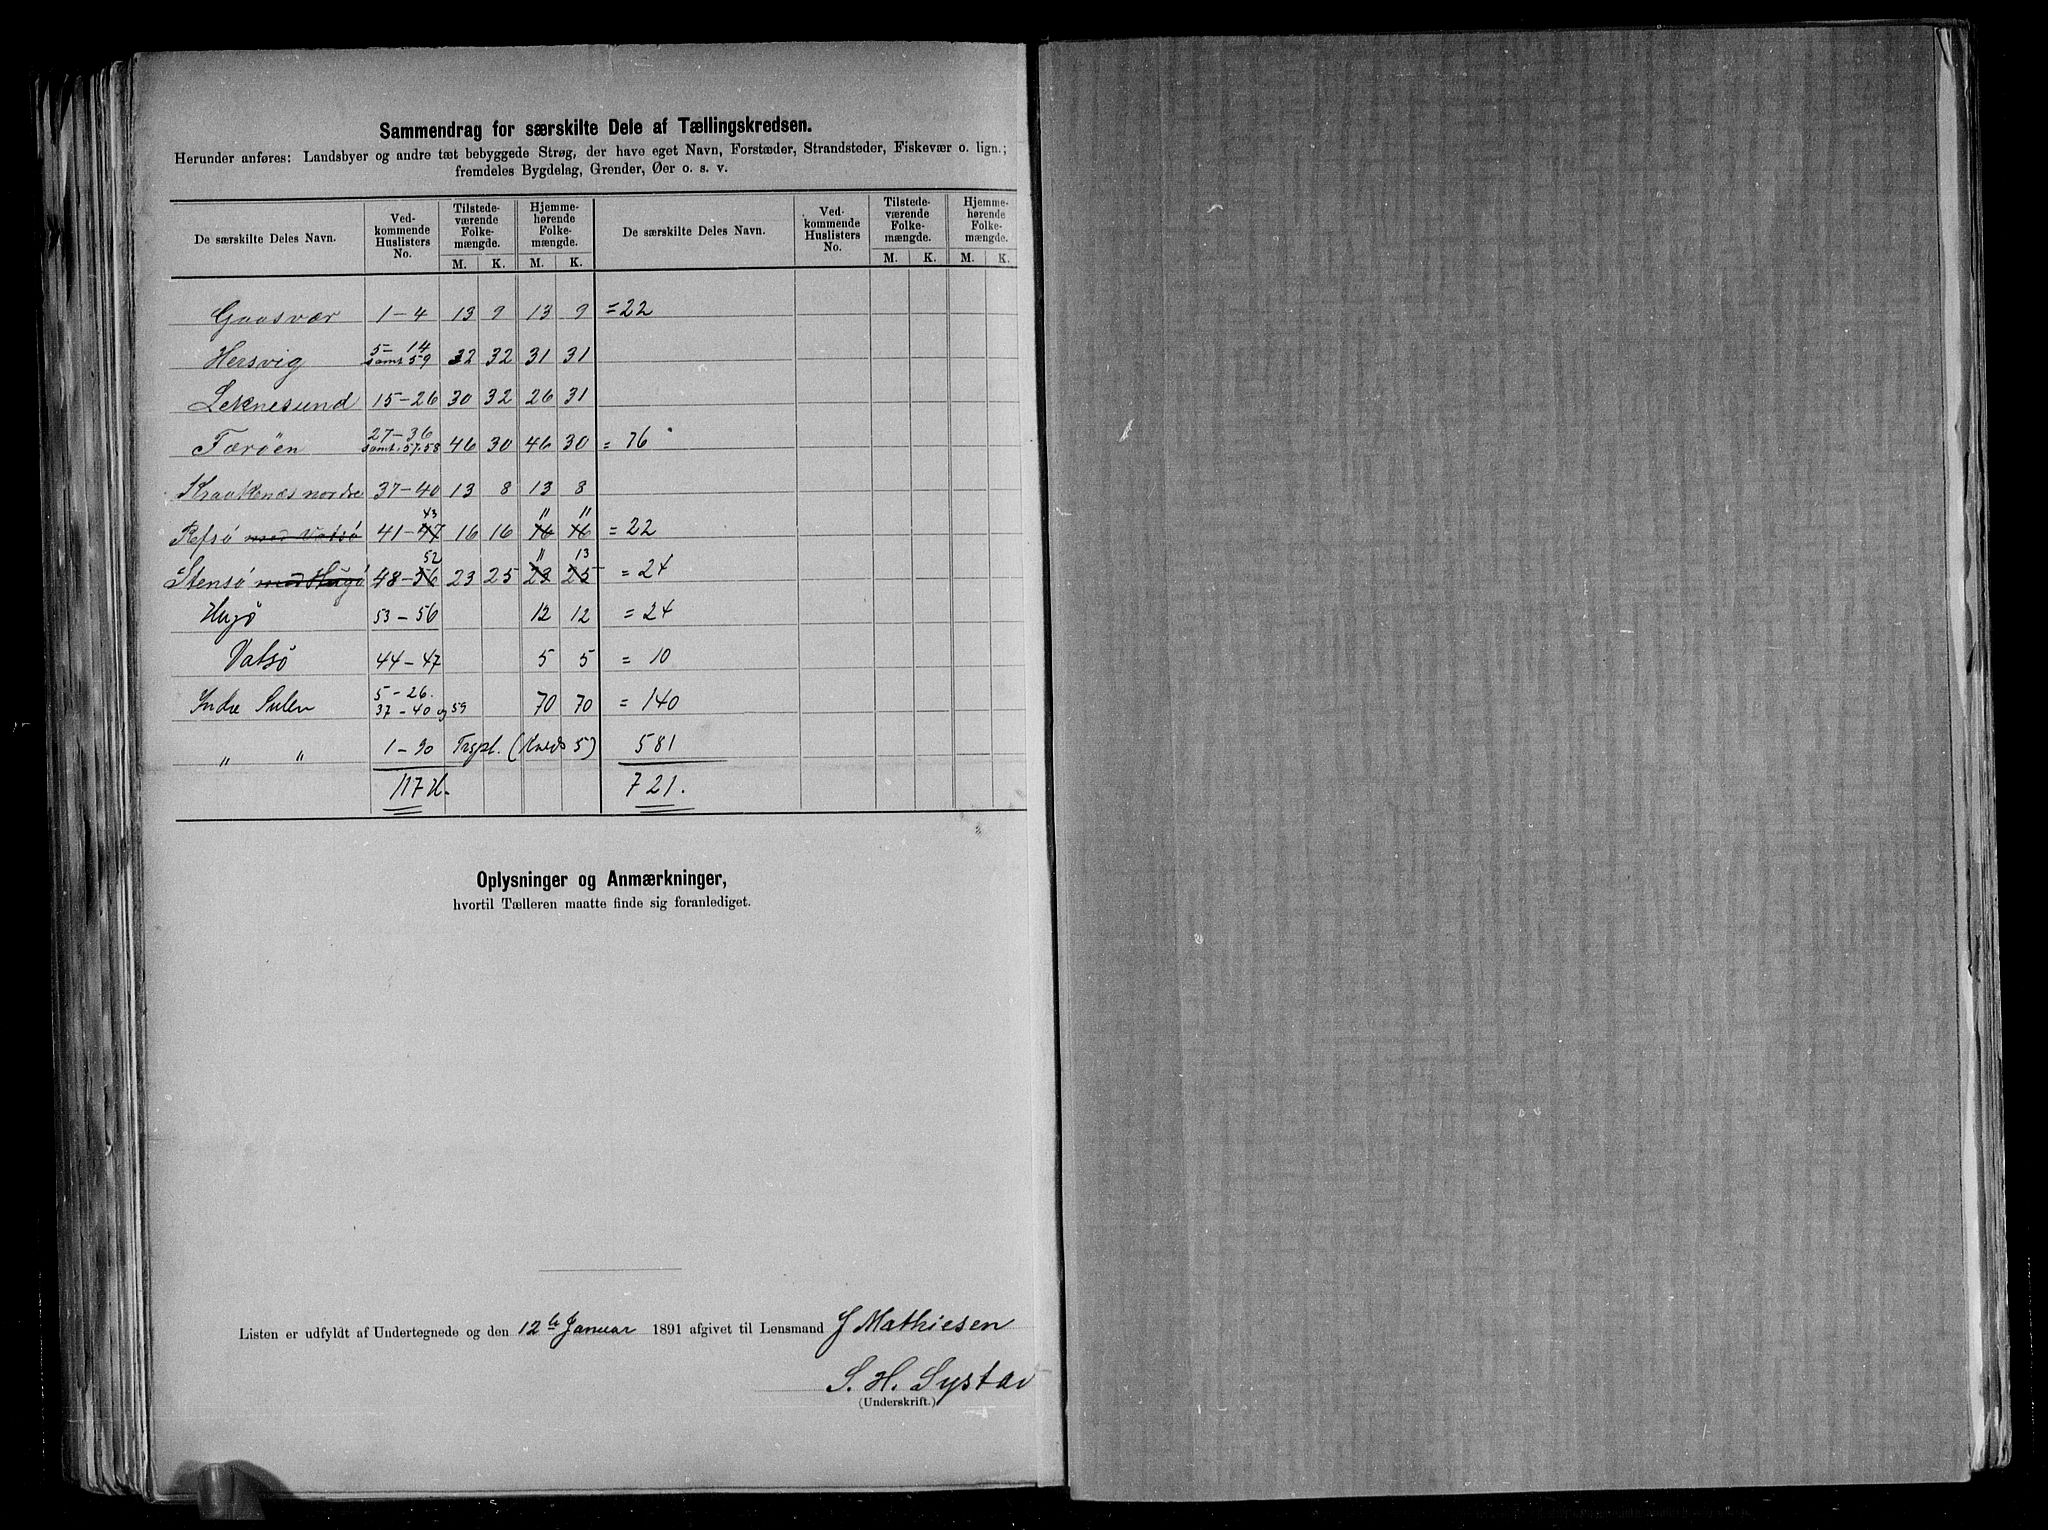 Sammendrag for særskilte Dele af Tællingskredsen.
Herunder anføres: Landsbyer og andre tæt bebyggede Strøg, der have eget Navn, Forstæder, Strandsteder, Fiskevær o. lign.;
fremdeles Bygdelag, Grender, Øer o. s. v.
De særskilte Deles Navn. Ved-kommende Huslisters No. Tilstede-værende Folke-mængde. Hjemme-hørende Folke-mængde. De særskilte Deles Navn. Ved-kommende Huslisters No. Tilstede-værende Folke-mængde. Hjemme-hørende Folke-mængde.
M. K. M. K. M. K. M. K.
Gaasvær 1-4 13 9 13 9 = 22
Hersvig 5-14 samt 59 32 32 31 31
Leknesund 15-26 30 32 26 31
Færöen 27-36 samt 57-58 46 30 46 30 = 76
Kraakenæs nordre 37-40 13 8 13 8
Refsö med Vatsö 41-47 43 16 16 16 " 16 " = 22
Stensö med Hugö 48-56 52 23 25 23 " 25 13 = 24
Hugö 53-56 12 12 = 24
Vatsö 44-47 5 5 = 10
Indre Sulen 5-26. 37-40 og 59 70 70 = 140
" " 1-90 Trspl. (Kreds 5) 581
117 H. 721.
Oplysninger og Anmærkninger,
hvortil Tælleren maatte finde sig foranlediget.
Listen er udfyldt af Undertegnede og den 12te Januar 1891 afgivet til Lensmand J Mathiesen
S. H. Systad
(Underskrift.)